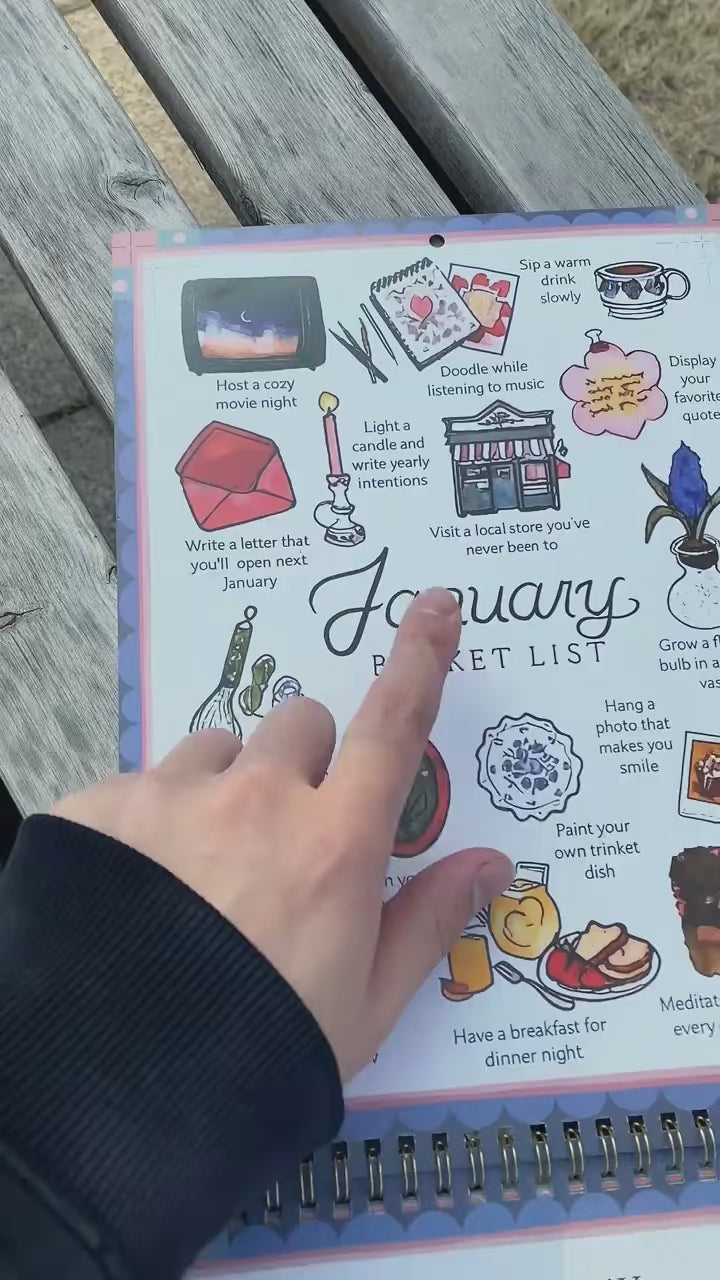 Sip a warm
drink
slowly
Host a cozy
movie night
Doodle while
listening to music
Display
your
favorite
quote
Light a
candle and
write yearly
intentions
Visit a local store you've
never been to
Write a letter that
you'll open next
January
January
BUCKET LIST
Grow a
bulb in a
Hang a
photo that
makes you
smile
Paint your
own trinket
dish
Have a breakfast for
dinner night
every